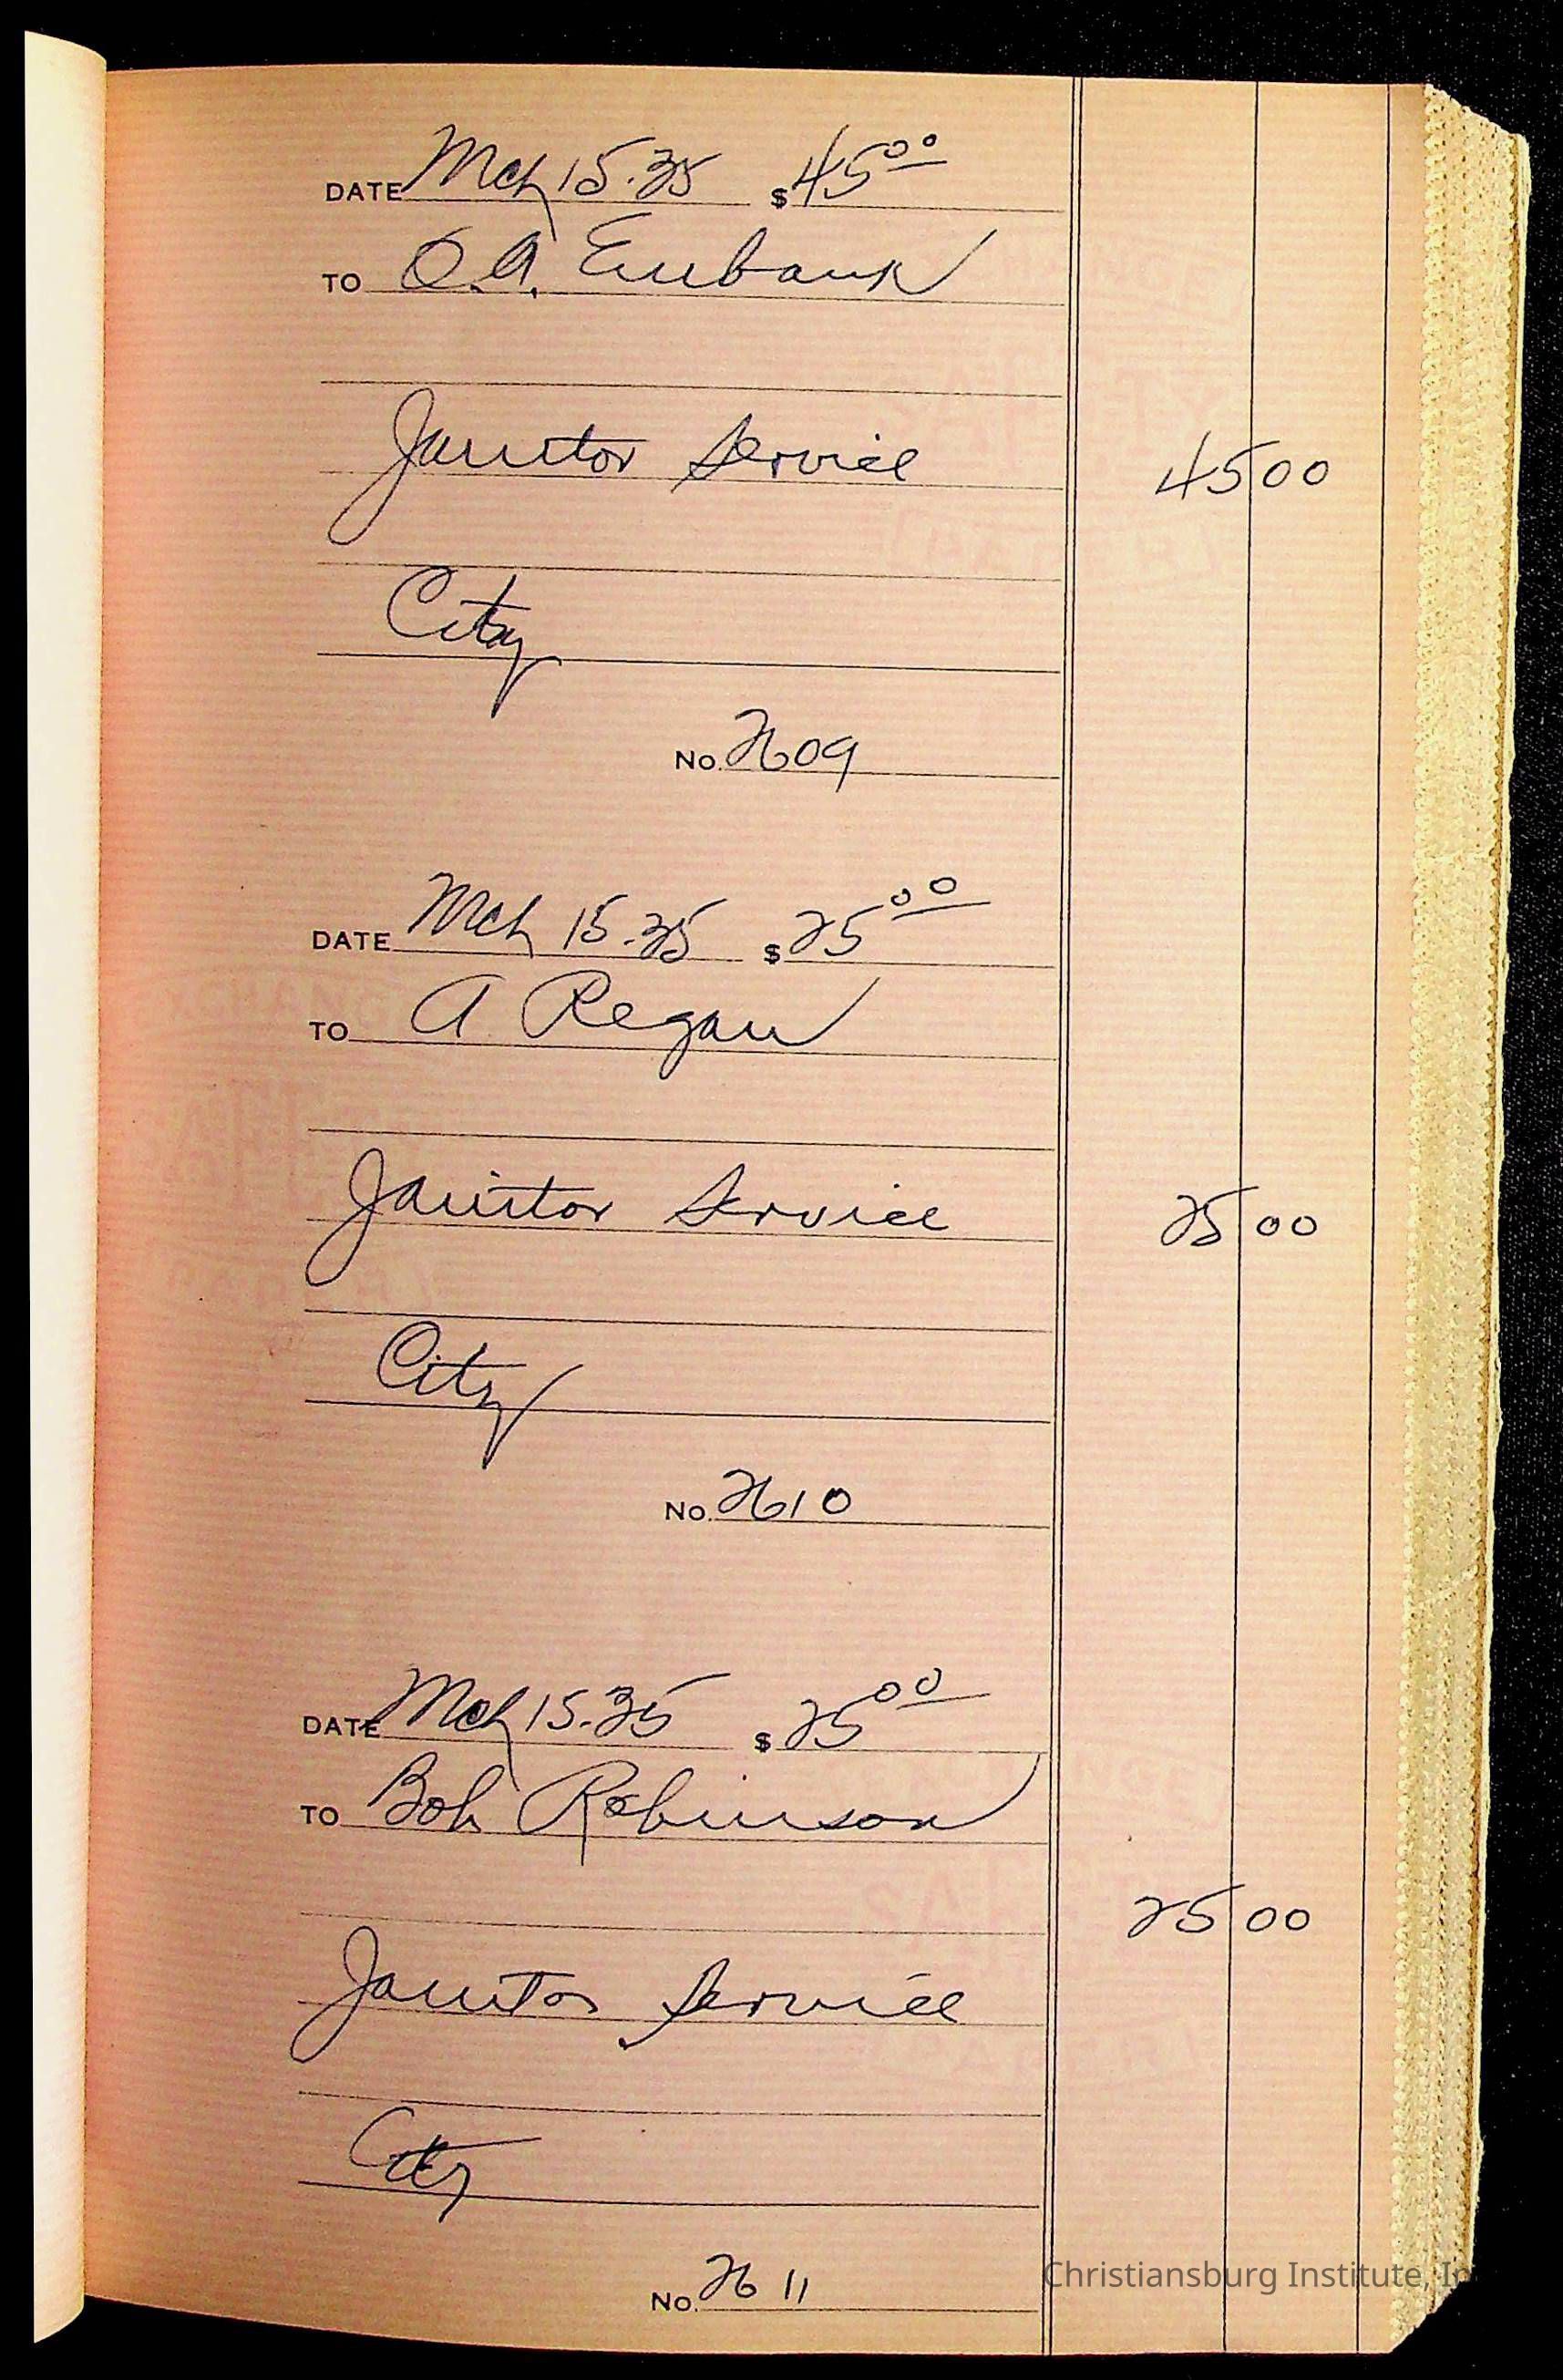 DATE Mch 15.35 $45.00
TO O.A. Eubank
Janitor Service 45 00
City
No. 2609
DATE Mch 15.35 $25.00
TO A Regan
Janitor Service 25 00
City
No. 2610
DATE Mch 15.35 $25.00
TO Bob Robinson
25 00
Janitor Service
City
No. 2611
Christiansburg Institute, In